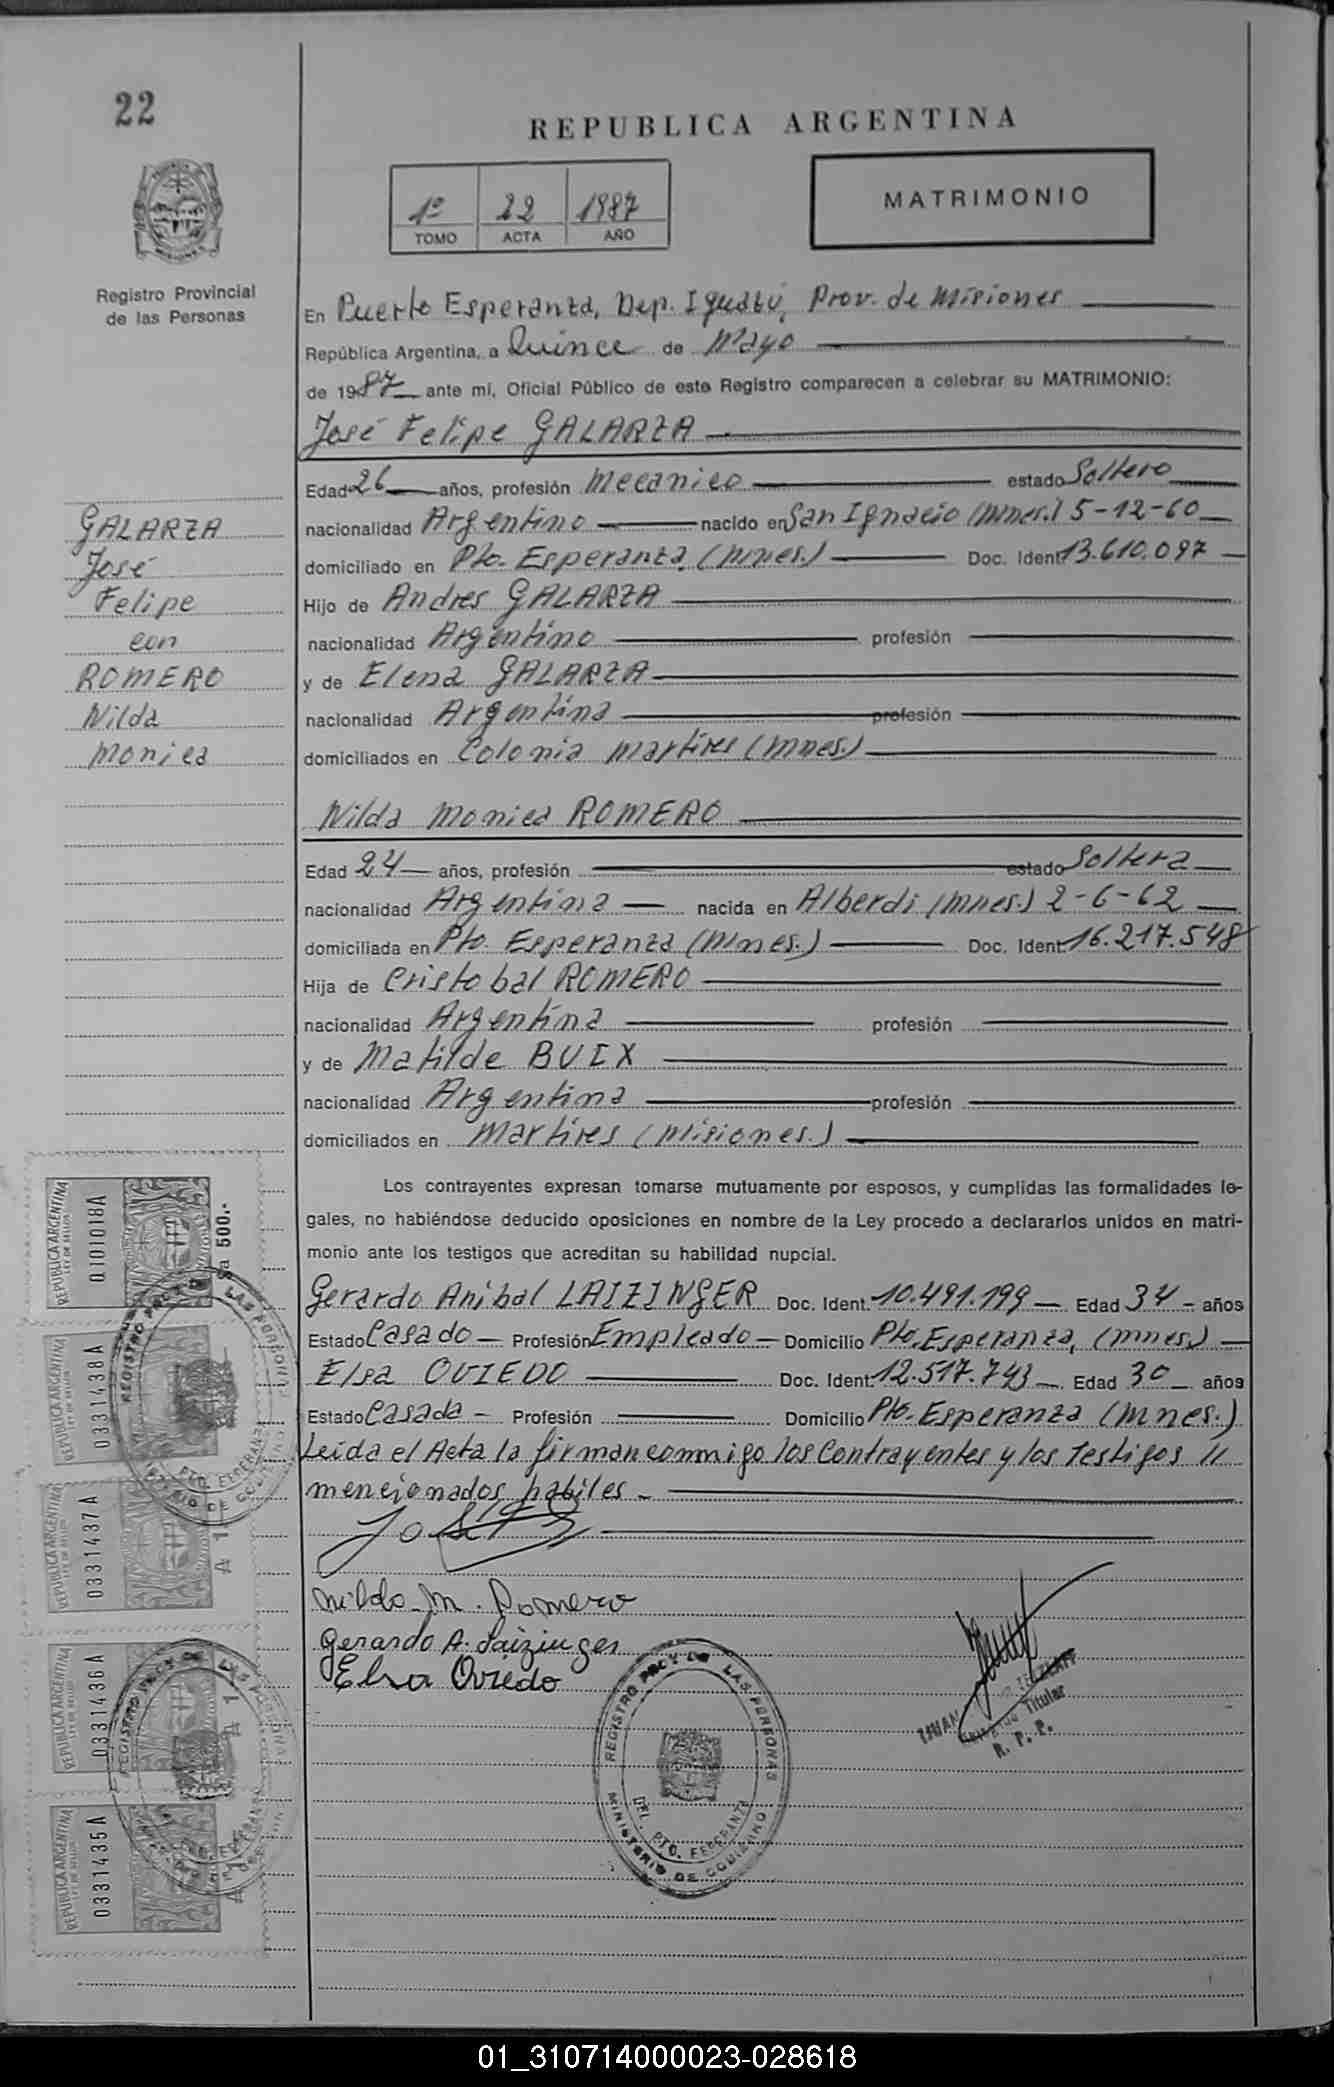 22
REPUBLICA ARGENTINA
1º 22 1987
TOMO ACTA AÑO
MATRIMONIO
Registro Provincial
de las Personas
En Puerto Esperanza, Dep. Iguazú, Prov. de Misiones
República Argentina, a Quince de Mayo
de 1987 ante mí, Oficial Público de este Registro comparecen a celebrar su MATRIMONIO:
José Felipe GALARZA
Edad 26 años, profesión Mecanico estado Soltero
nacionalidad Argentino nacido en San Ignacio (Mnes.) 5-12-60
domiciliado en Pto. Esperanza, (Mnes.) Doc. Ident. 13.610.097
Hijo de Andres GALARZA
nacionalidad Argentino profesión
y de Elena GALARZA
nacionalidad Argentina profesión
domiciliados en Colonia Martires (Mnes.)
GALARZA
José
Felipe
con
ROMERO
Nilda
Monica
Nilda Monica ROMERO
Edad 24 años, profesión estado Soltera
nacionalidad Argentina nacida en Alberdi (Mnes.) 2-6-62
domiciliada en Pto. Esperanza (Mnes.) Doc. Ident. 16.217.548
Hija de Cristobal ROMERO
nacionalidad Argentina profesión
y de Matilde BUIX
nacionalidad Argentina profesión
domiciliados en Martires (Misiones.)
Los contrayentes expresan tomarse mutuamente por esposos, y cumplidas las formalidades le-
gales, no habiéndose deducido oposiciones en nombre de la Ley procedo a declararlos unidos en matri-
monio ante los testigos que acreditan su habilidad nupcial.
Gerardo Anibal LAIZINGER Doc. Ident. 10.491.199 Edad 34 años
Estado Casado Profesión Empleado Domicilio Pto. Esperanza, (Mnes.)
Elsa OVIEDO Doc. Ident. 12.517.743 Edad 30 años
Estado Casada Profesión Domicilio Pto. Esperanza (Mnes.)
Leída el Acta la firman conmigo los Contrayentes y los Testigos //
mencionados habiles
Nilda M. Romero
Gerardo A. Laizinger
Elsa Oviedo
REPUBLICA ARGENTINA
LEY DE SELLOS
0101018A
a 500.-
REPUBLICA ARGENTINA
LEY DE SELLOS
0331438A
REPUBLICA ARGENTINA
LEY DE SELLOS
0331437A
A 1
REPUBLICA ARGENTINA
LEY DE SELLOS
0331436A
A 1
REPUBLICA ARGENTINA
LEY DE SELLOS
0331435A
A 1
REGISTRO PROV. DE LAS PERSONAS
PTO. ESPERANZA
MINISTERIO DE GOBIERNO
REGISTRO PROV. DE LAS PERSONAS
REGISTRO PROV. DE LAS PERSONAS
DEL. PTO. ESPERANZA
MINISTERIO DE GOBIERNO
JUAN
Titular
R. P. P.
01_310714000023-028618